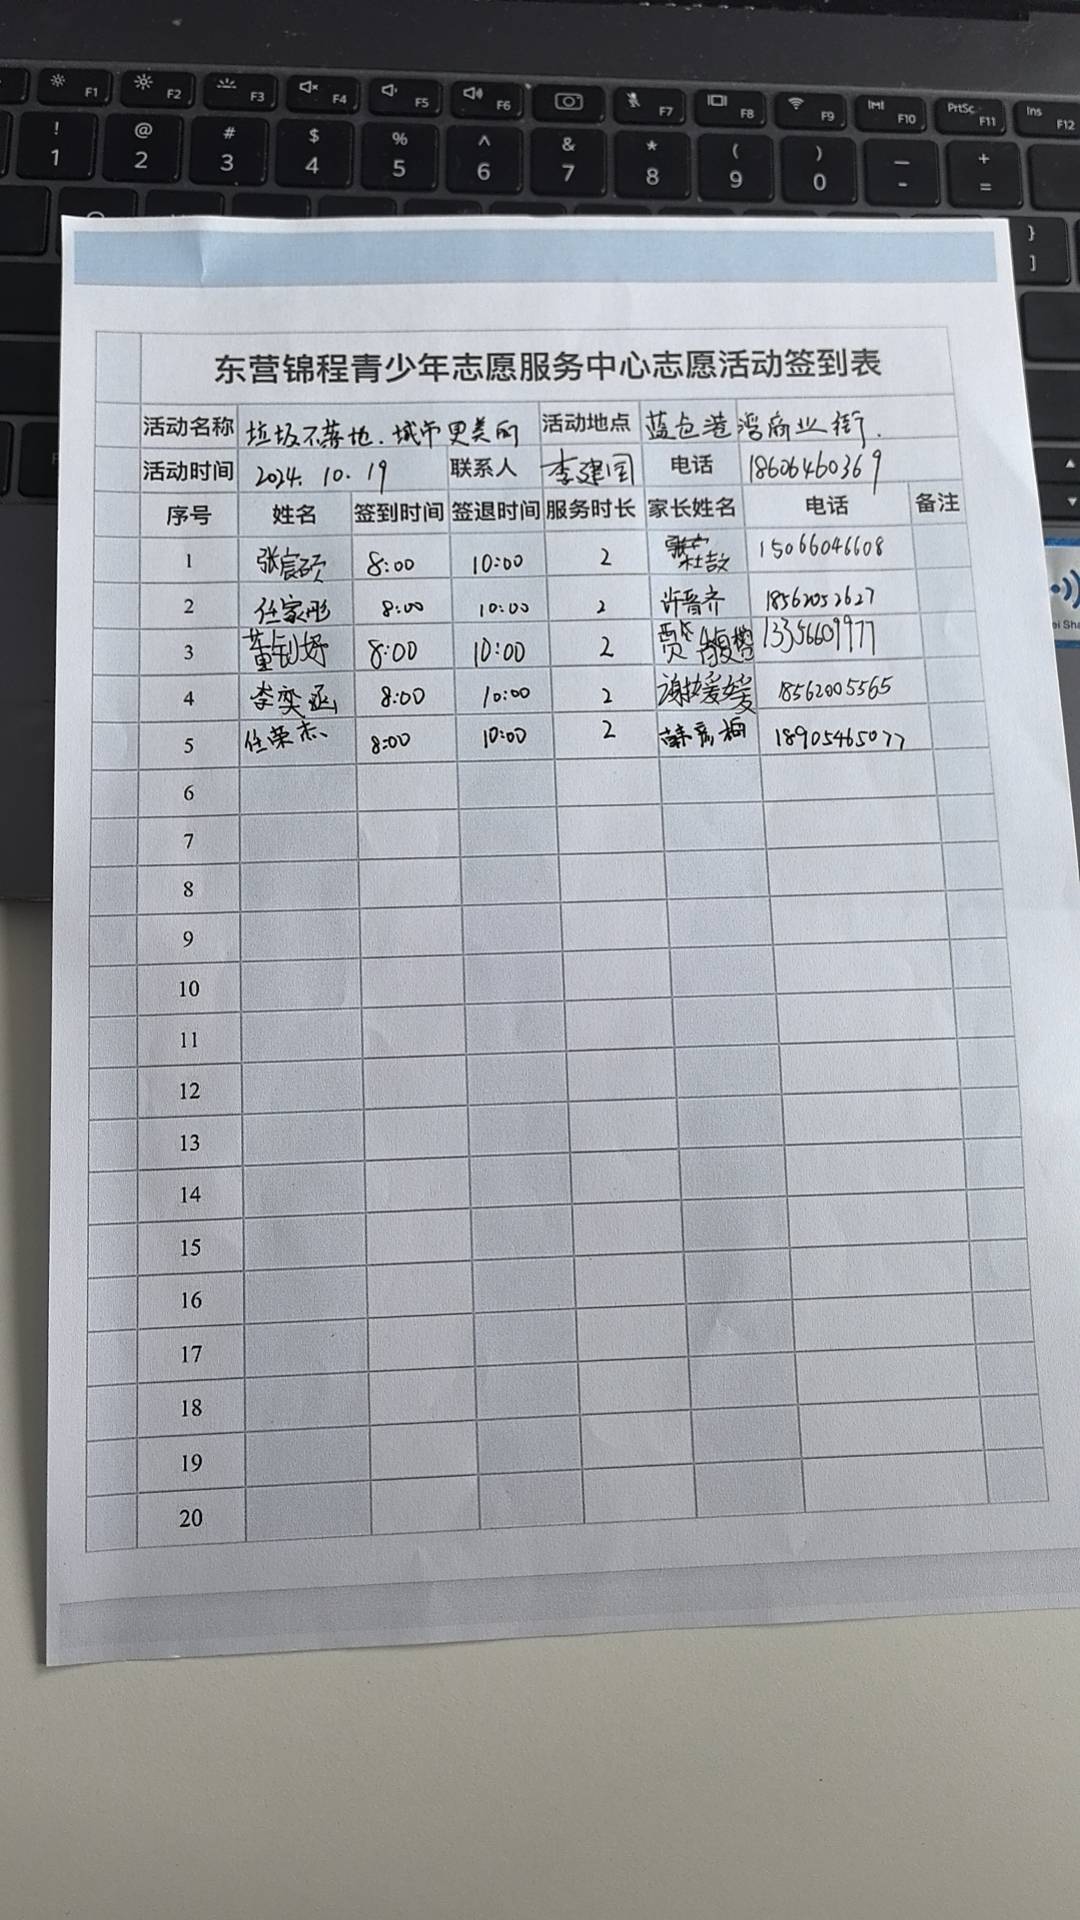 F1 F2 F3 F4 F5 F6 F7 F8 F9 F10 PrtSc F11 Ins F12
! @ # $ % ^ & * ( ) — +
1 2 3 4 5 6 7 8 9 0 - =
}
]
东营锦程青少年志愿服务中心志愿活动签到表
活动名称 垃圾不落地.城市更美丽 活动地点 蓝色港湾商业街.
活动时间 2024.10.19 联系人 李建国 电话 18606460369
序号 姓名 签到时间 签退时间 服务时长 家长姓名 电话 备注
1 张宸硕 8:00 10:00 2 15066046608
2 任家彤 8:00 10:00 2 许晋齐 18562052627
3 董钊妤 8:00 10:00 2 13356609977
4 李奕函 8:00 10:00 2 谢媛媛 18562005565
5 任荣杰 8:00 10:00 2 18905465077
6
7
8
9
10
11
12
13
14
15
16
17
18
19
20